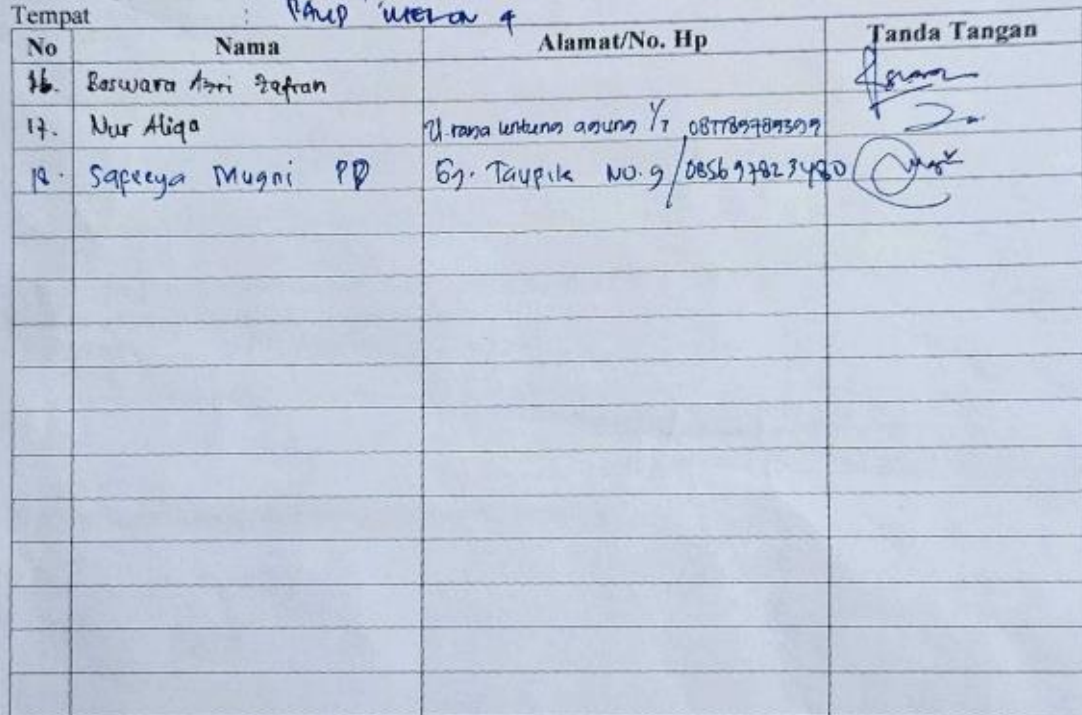 Tempat : PAUD MELON 4
No Nama Alamat/No. Hp Tanda Tangan
16. Baswara Azri Zafran
17. Nur Aliqa untung agung 1/7
18. Safeeya Mugni PP Gg. Taupik NO. 9 / 085697823480